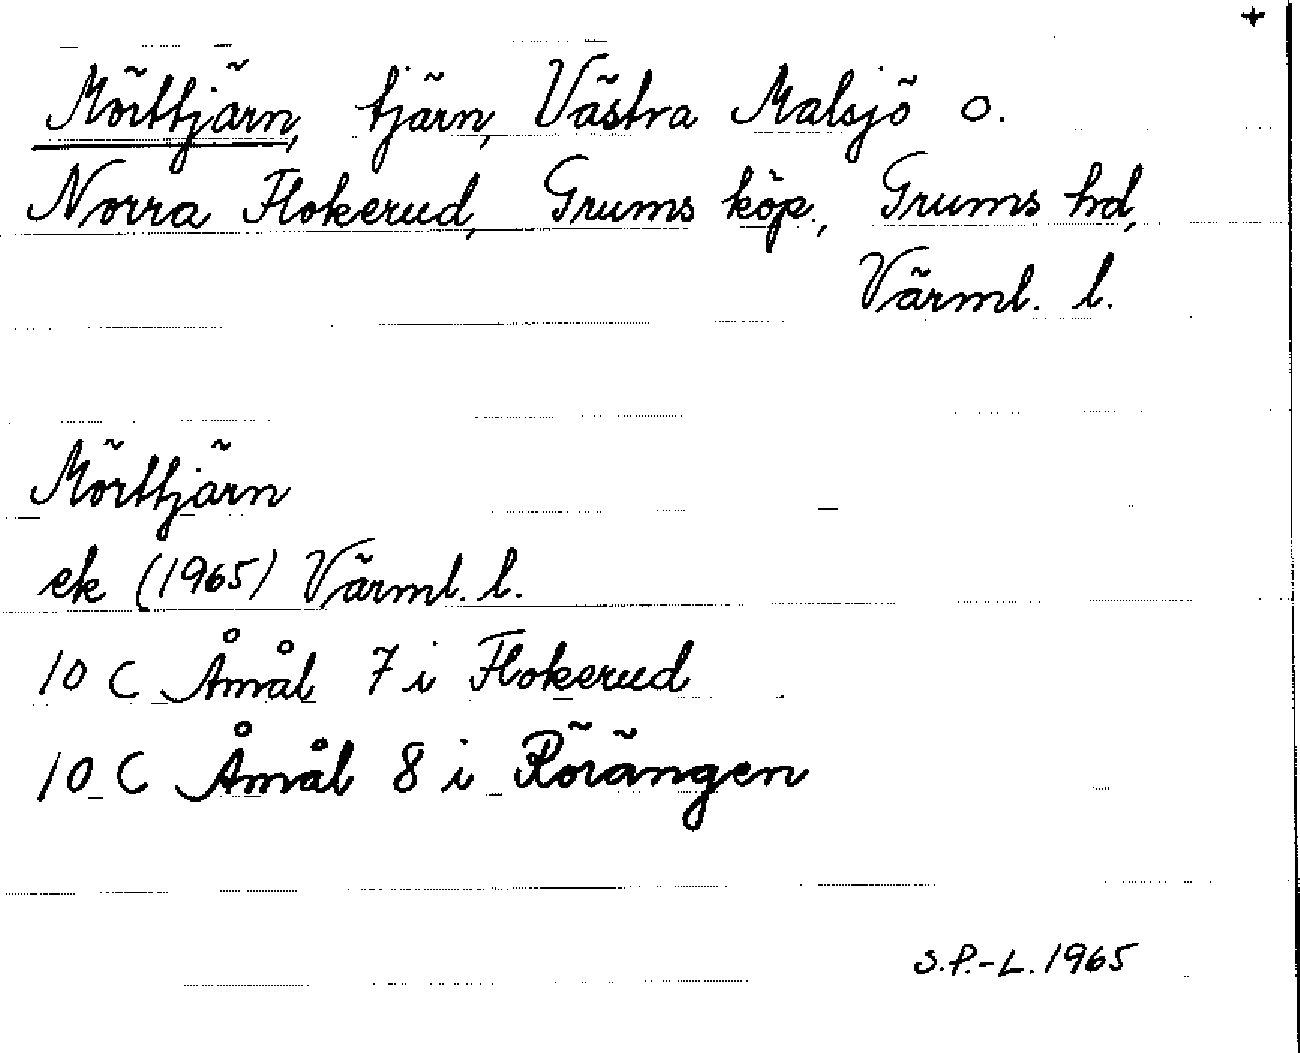 +
Mörttjärn, tjärn, Västra Malsjö o.
Norra Flokerud, Grums köp., Grums hd,
Värml. l.
Mörttjärn
ek (1965) Värml. l.
10 C Åmål 7 i Flokerud
10 C Åmål 8 i Rörängen
S.P.-L. 1965